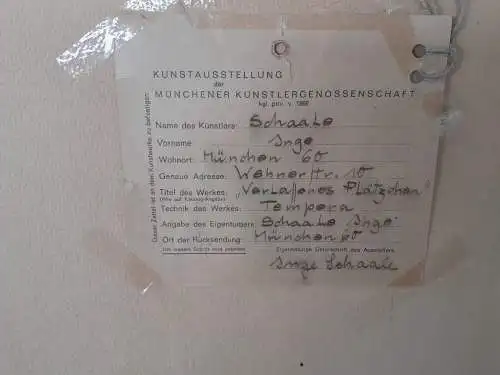 KUNSTAUSSTELLUNG
der
MÜNCHENER KÜNSTLERGENOSSENSCHAFT
kgl. priv. v. 1868
Name des Künstlers: Schaale
Vorname Inge
Wohnort: München 60
Genaue Adresse: Wehnerstr. 10
Titel des Werkes: „Verlassenes Plätzchen"
Technik des Werkes: Tempera
Angabe des Eigentümers: Schaale Inge
Ort der Rücksendung: München 60
Eigenhändige Unterschrift des Ausstellers
Inge Schaale
Dieser Zettel ist an dem Kunstwerke zu befestigen